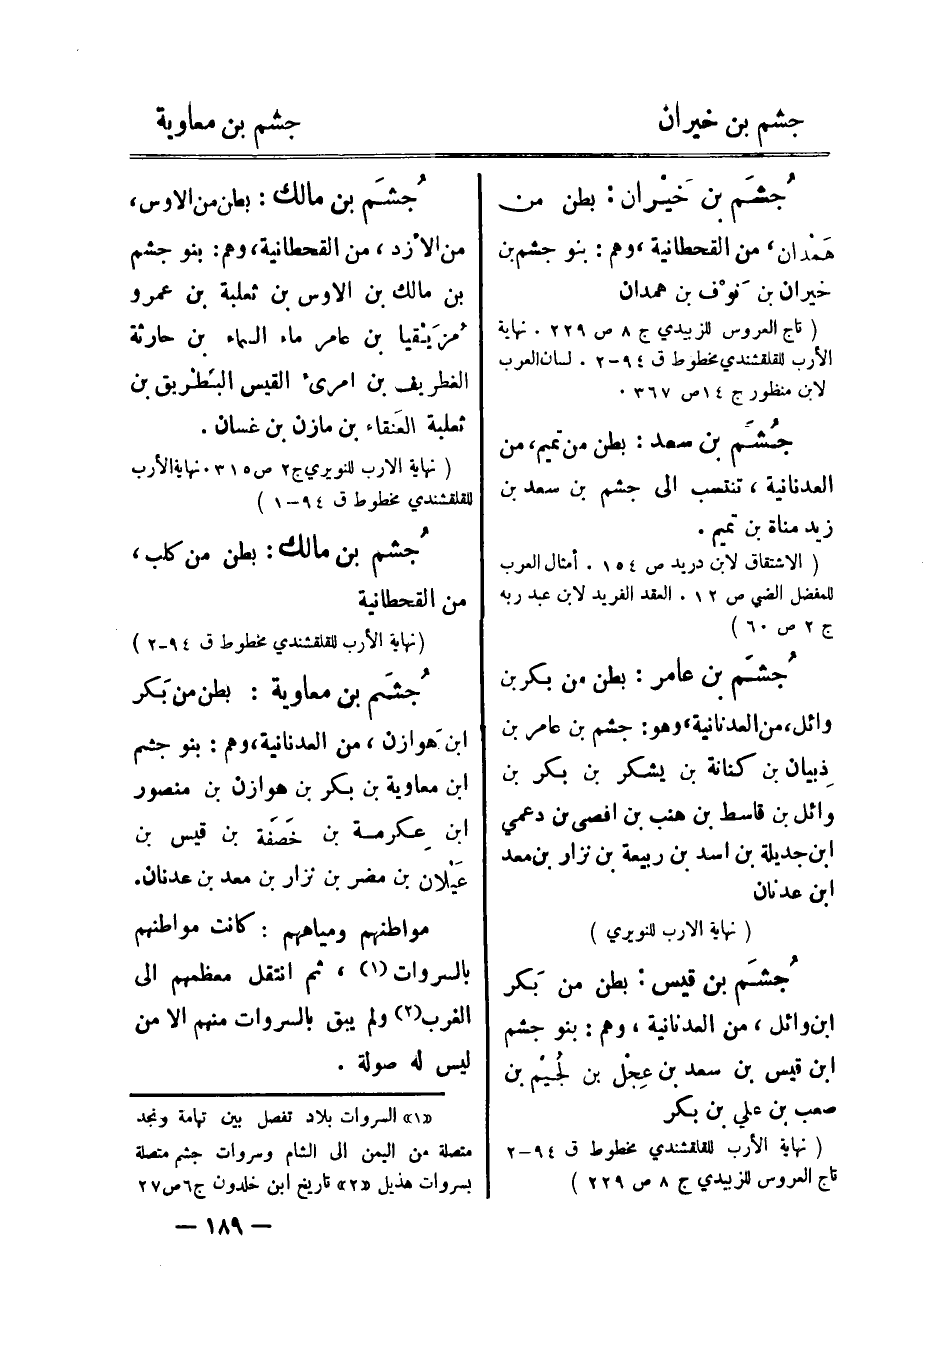 جشم بن خيران
جشم بن معاوية
جُشَم بن خَيْران: بطن من
هَمْدان، من القحطانية، وهم: بنو جشم بن
خيران بن نَوْف بن همدان
( تاج العروس للزبيدي ج ٨ ص ٢٢٩ . نهاية
الأرب للقلقشندي مخطوط ق ٩٤-٢ . لسان العرب
لابن منظور ج ١٤ ص ٣٦٧ .
جُشَم بن سعد: بطن من تميم، من
العدنانية، تنتسب الى جشم بن سعد بن
زيد مناة بن تميم .
( الاشتقاق لابن دريد ص ١٥٤ . أمثال العرب
للمفضل الضبي ص ١٢ . العقد الفريد لابن عبد ربه
ج ٢ ص ٦٠ )
جُشَم بن عامر: بطن من بكر بن
وائل، من العدنانية، وهو: جشم بن عامر بن
ذبيان بن كنانة بن يشكر بن بكر بن
وائل بن قاسط بن هنب بن افصى بن دعمي
ابن جديلة بن اسد بن ربيعة بن نزار بن معد
ابن عدنان
( نهاية الارب للنويري )
جُشَم بن قيس: بطن من بَكر
ابن وائل، من العدنانية، وهم: بنو جشم
ابن قيس بن سعد بن عِجْل بن لُجَيْم بن
صعب بن علي بن بكر
( نهاية الأرب للقلقشندي مخطوط ق ٩٤-٢
تاج العروس للزبيدي ج ٨ ص ٢٢٩ )
جُشَم بن مالك: بطن من الاوس،
من الأزد، من القحطانية، وهم: بنو جشم
بن مالك بن الاوس بن ثعلبة بن عمرو
مُزَيْقيا بن عامر ماء السماء بن حارثة
الغطريف بن امرىء القيس البِطْريق بن
ثعلبة العَنقاء بن مازن بن غسان .
( نهاية الارب للنويري ج٢ ص ٣١٥ . نهاية الأرب
للقلقشندي مخطوط ق ٩٤-١ )
جُشم بن مالك: بطن من كلب،
من القحطانية
(نهاية الأرب للقلقشندي مخطوط ق ٩٤-٢ )
جُشَم بن معاوية : بطن من بَكر
ابن هَوازن، من العدنانية، وهم: بنو جشم
ابن معاوية بن بكر بن هوازن بن منصور
ابن عِكرمة بن خَصَفَة بن قيس بن
عَيْلان بن مضر بن نزار بن معد بن عدنان.
مواطنهم ومياههم : كانت مواطنهم
بالسروات (١) ، ثم انتقل معظمهم الى
الغرب(٢) ولم يبق بالسروات منهم الا من
ليس له صولة .
«١» السروات بلاد تفصل بين تهامة ونجد
متصلة من اليمن الى الشام وسروات جشم متصلة
بسروات هذيل «٢» تاريخ ابن خلدون ج٦ ص ٢٧
— ١٨٩ —